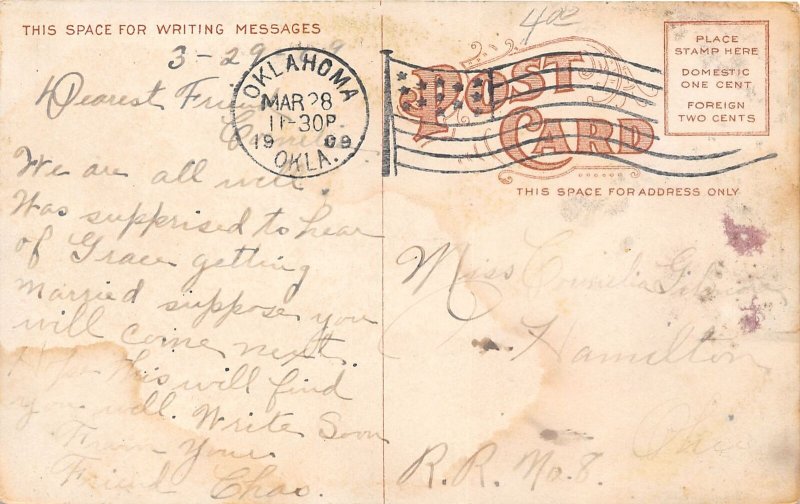 THIS SPACE FOR WRITING MESSAGES
3-29
Dearest Friend
We are all well.
Was supprised to hear
of Grace getting
married suppose you
will come next.
Hope this will find
you well. Write Soon
From your
Friend Chas.
OKLAHOMA
MAR 28
11-30P
1909
OKLA.
400
POST
CARD
PLACE
STAMP HERE
DOMESTIC
ONE CENT
FOREIGN
TWO CENTS
THIS SPACE FOR ADDRESS ONLY
Miss Cornelia
Hamilton
Ohio
R. R. No. 8.